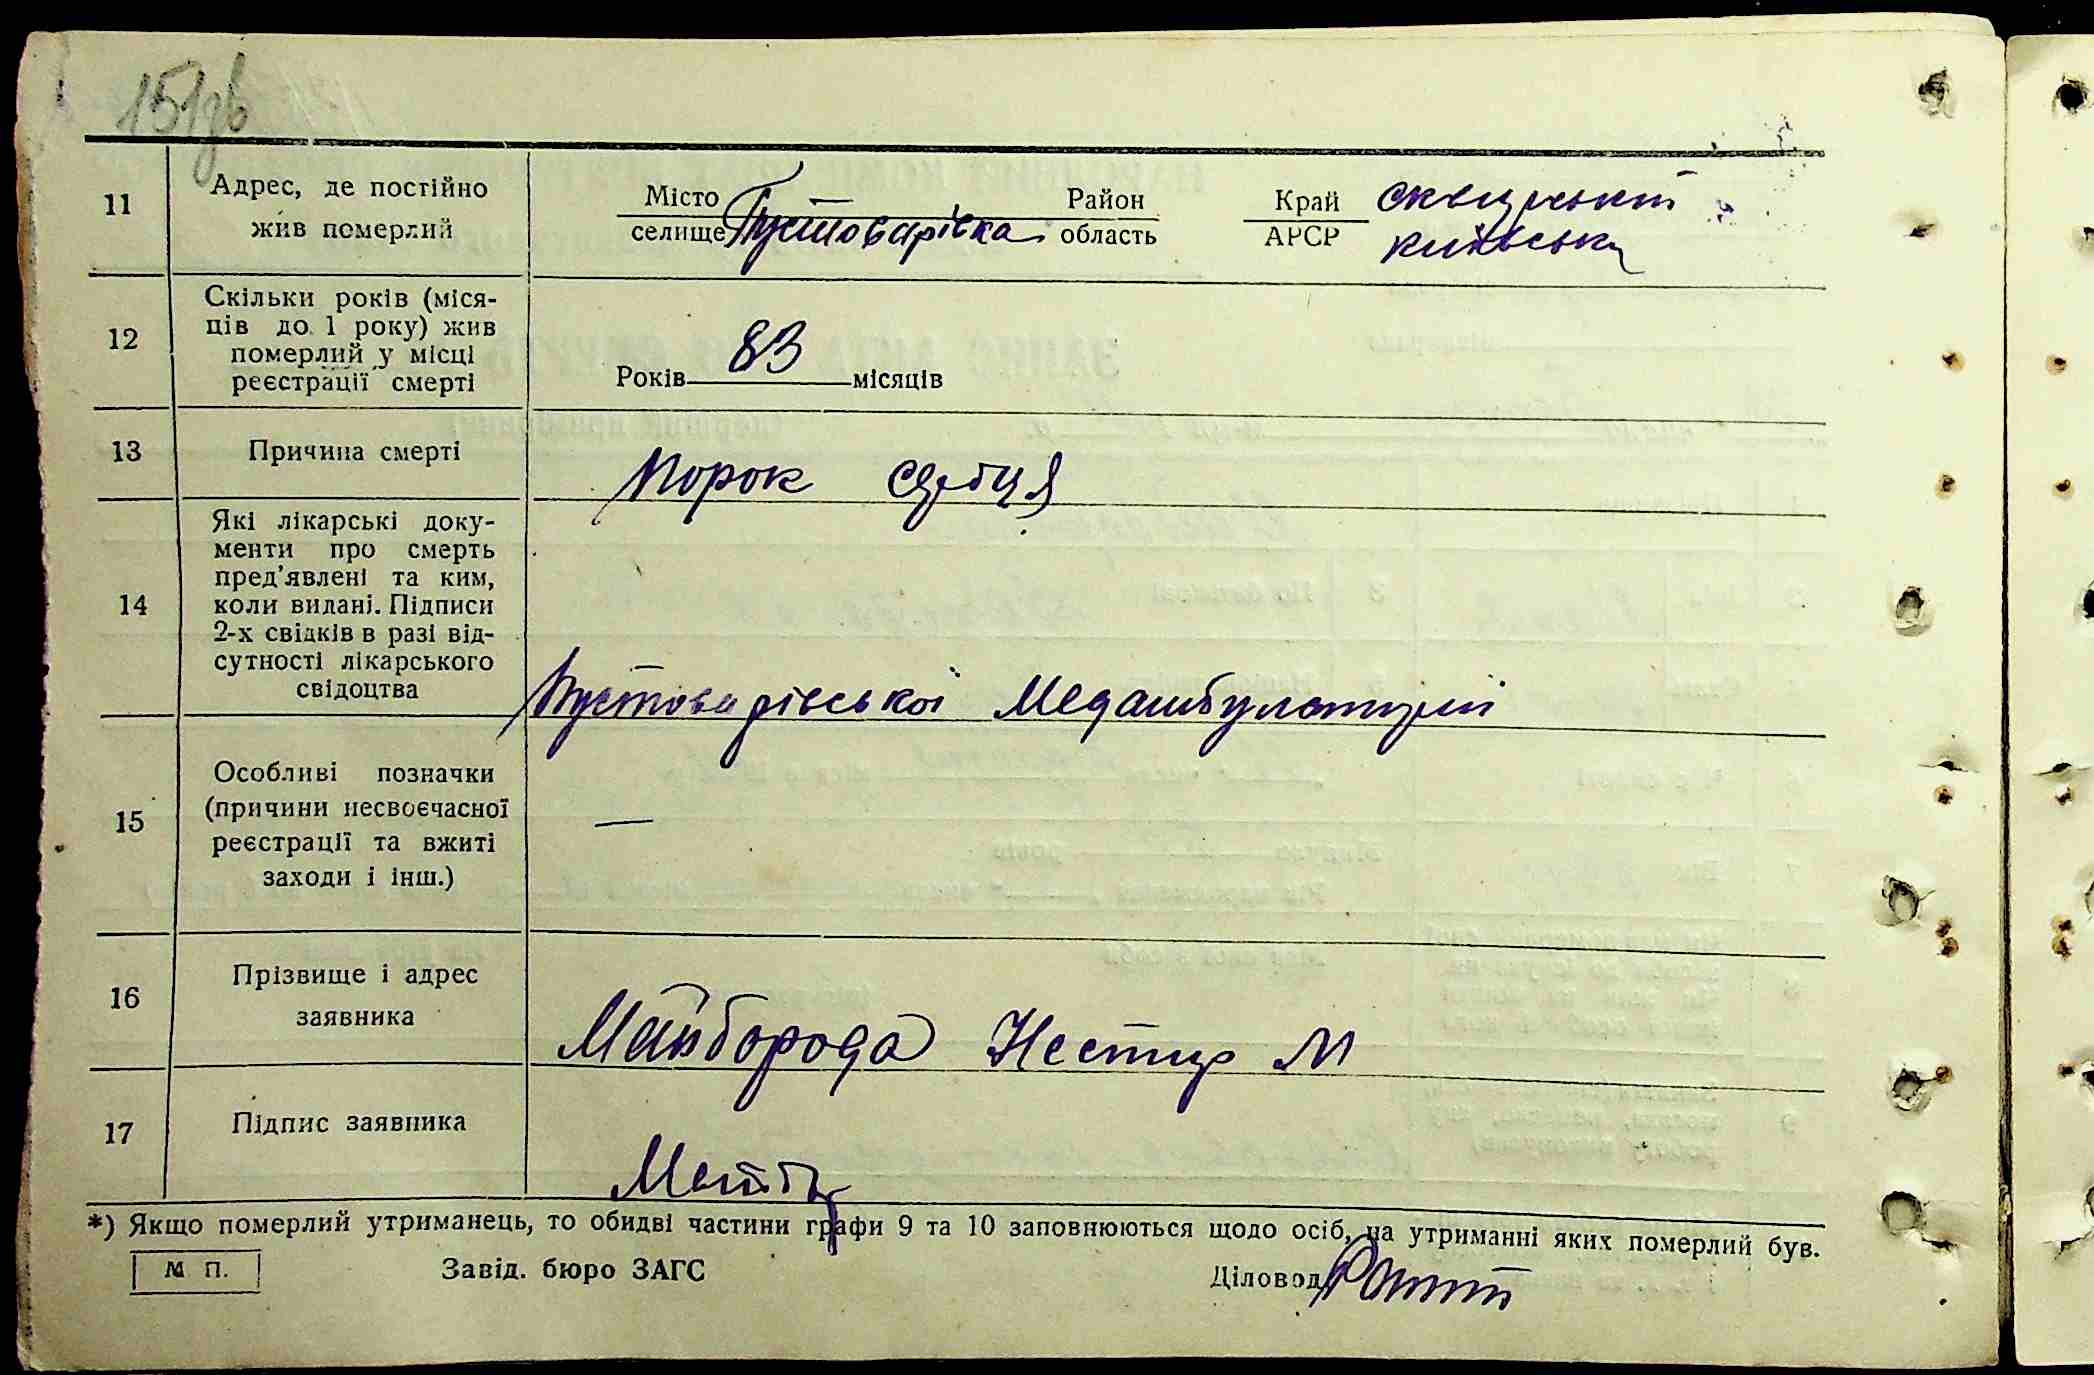 151зв
11 Адрес, де постійно жив померлий
Місто селище Пустоварівка Район область Край АРСР сквирський київська
12 Скільки років (міся-
ців до 1 року) жив
померлий у місці
реєстрації смерті
Років 83 місяців
13 Причина смерті порок сердця
14 Які лікарські доку-
менти про смерть
пред'явлені та ким,
коли видані. Підписи
2-х свідків в разі від-
сутності лікарського
свідоцтва
Пустоварівської Медамбулаторії
15 Особливі позначки
(причини несвоєчасної
реєстрації та вжиті
заходи і інш.)
—
16 Прізвище і адрес
заявника
Майборода Нестир М
17 Підпис заявника
*) Якщо померлий утриманець, то обидві частини графи 9 та 10 заповнюються щодо осіб, на утриманні яких померлий був.
М П. Завід. бюро ЗАГС Діловод